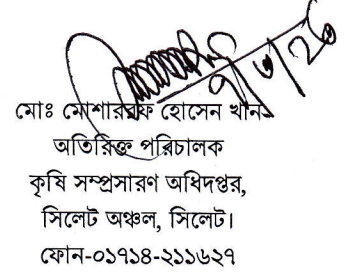 ৭/৩/২৩
মোঃ মোশাররফ হোসেন খান
অতিরিক্ত পরিচালক
কৃষি সম্প্রসারণ অধিদপ্তর,
সিলেট অঞ্চল, সিলেট।
ফোন-০১৭১৪-২১১৬২৭